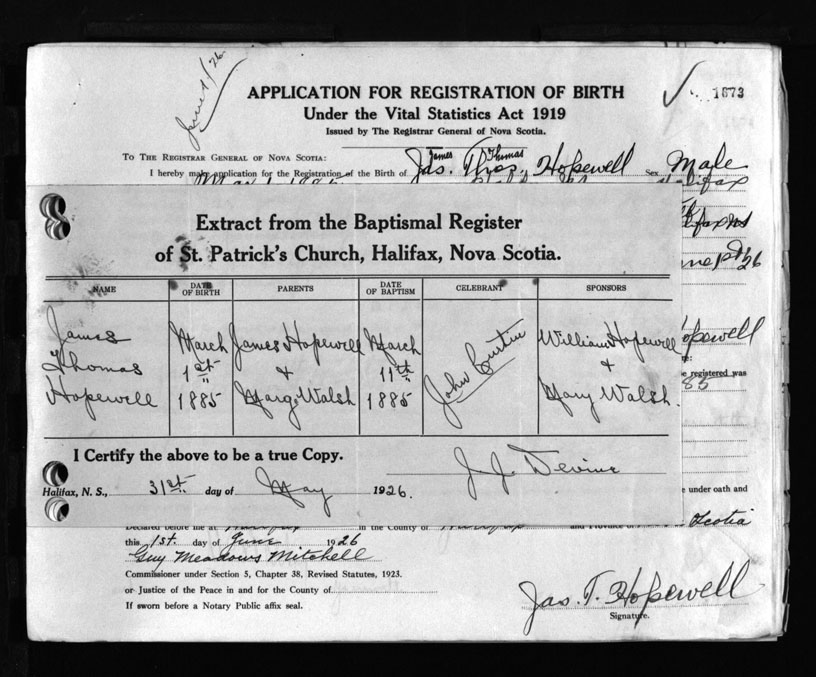 June 1/26
1873
APPLICATION FOR REGISTRATION OF BIRTH
Under the Vital Statistics Act 1919
Issued by The Registrar General of Nova Scotia.
TO THE REGISTRAR GENERAL OF NOVA SCOTIA:
James Thomas
I hereby make application for the Registration of the Birth of Jas. Thos. Hopewell Sex Male
Halifax
Extract from the Baptismal Register
of St. Patrick's Church, Halifax, Nova Scotia.
NAME DATE OF BIRTH PARENTS DATE OF BAPTISM CELEBRANT SPONSORS
James March James Hopewell March William Hopewell
Thomas 1st & 11th John Curtin &
Hopewell 1885 Marg. Walsh 1885 Mary Walsh.
be registered was
85
I Certify the above to be a true Copy.
J. J. Devine
Halifax, N. S., 31st day of May 1926.
under oath and
Declared before me at Halifax in the County of Halifax and Province of Scotia
this 1st. day of June 1926
Guy Meadows Mitchell
Commissioner under Section 5, Chapter 38, Revised Statutes, 1923.
or Justice of the Peace in and for the County of
If sworn before a Notary Public affix seal.
Jas. T. Hopewell
Signature.